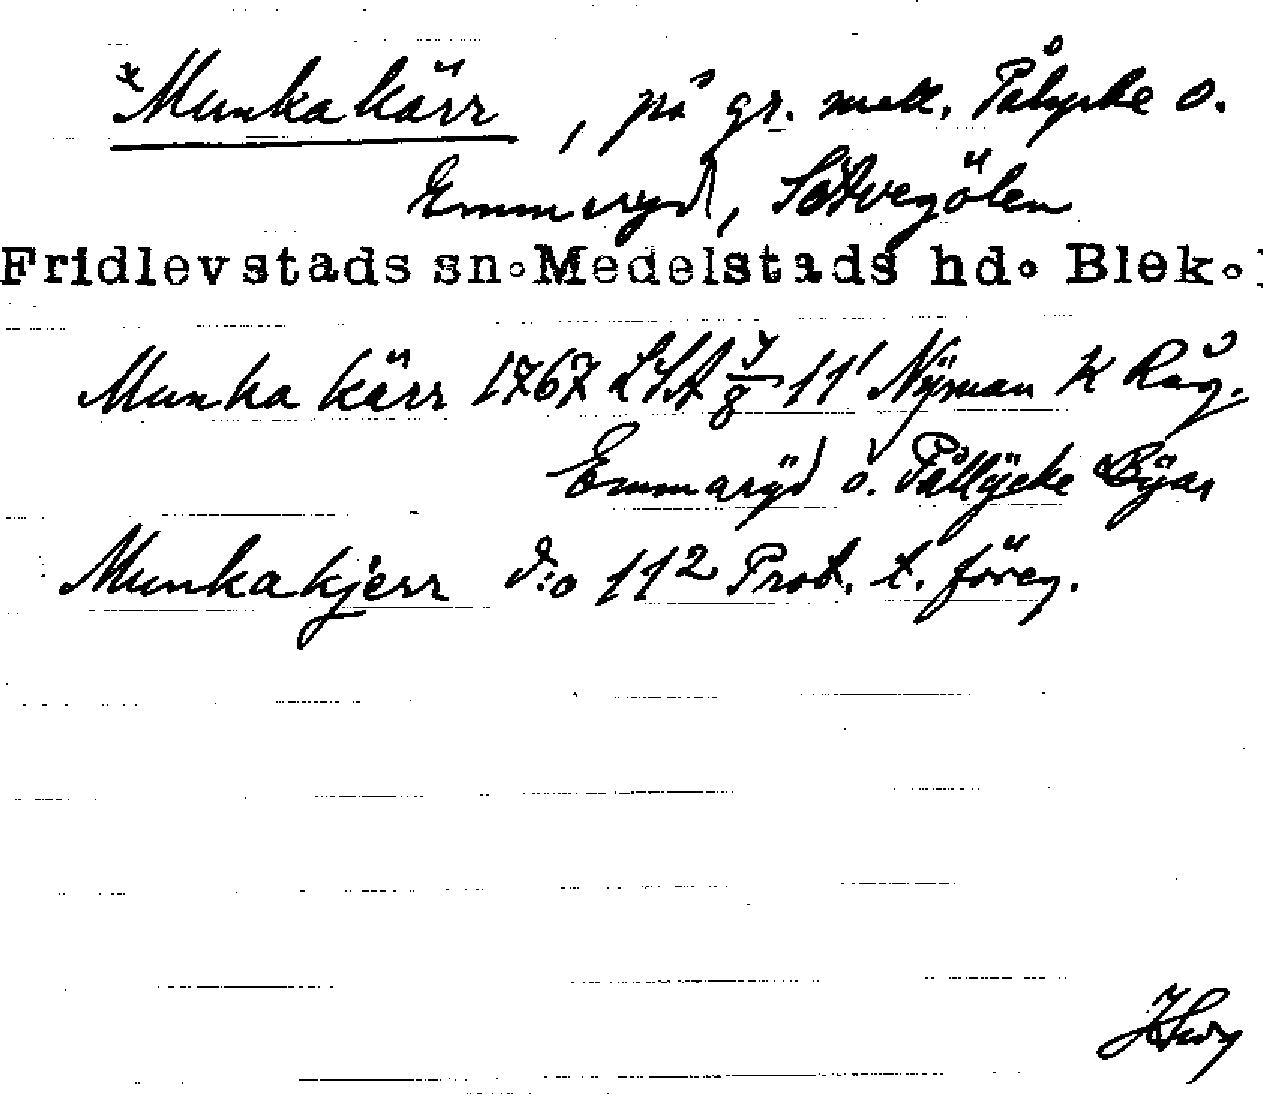 *Munkakärr, på gr. mell. Pålycke o.
Emmaryd,
Fridlevstads sn. Medelstads hd. Blek.
Munka kärr 1767 LSA 11¹ Nÿman K Råg.
Emmarÿd o. Pållÿcke Bÿar
Munkakjerr d:o 11² Prot. t. föreg.